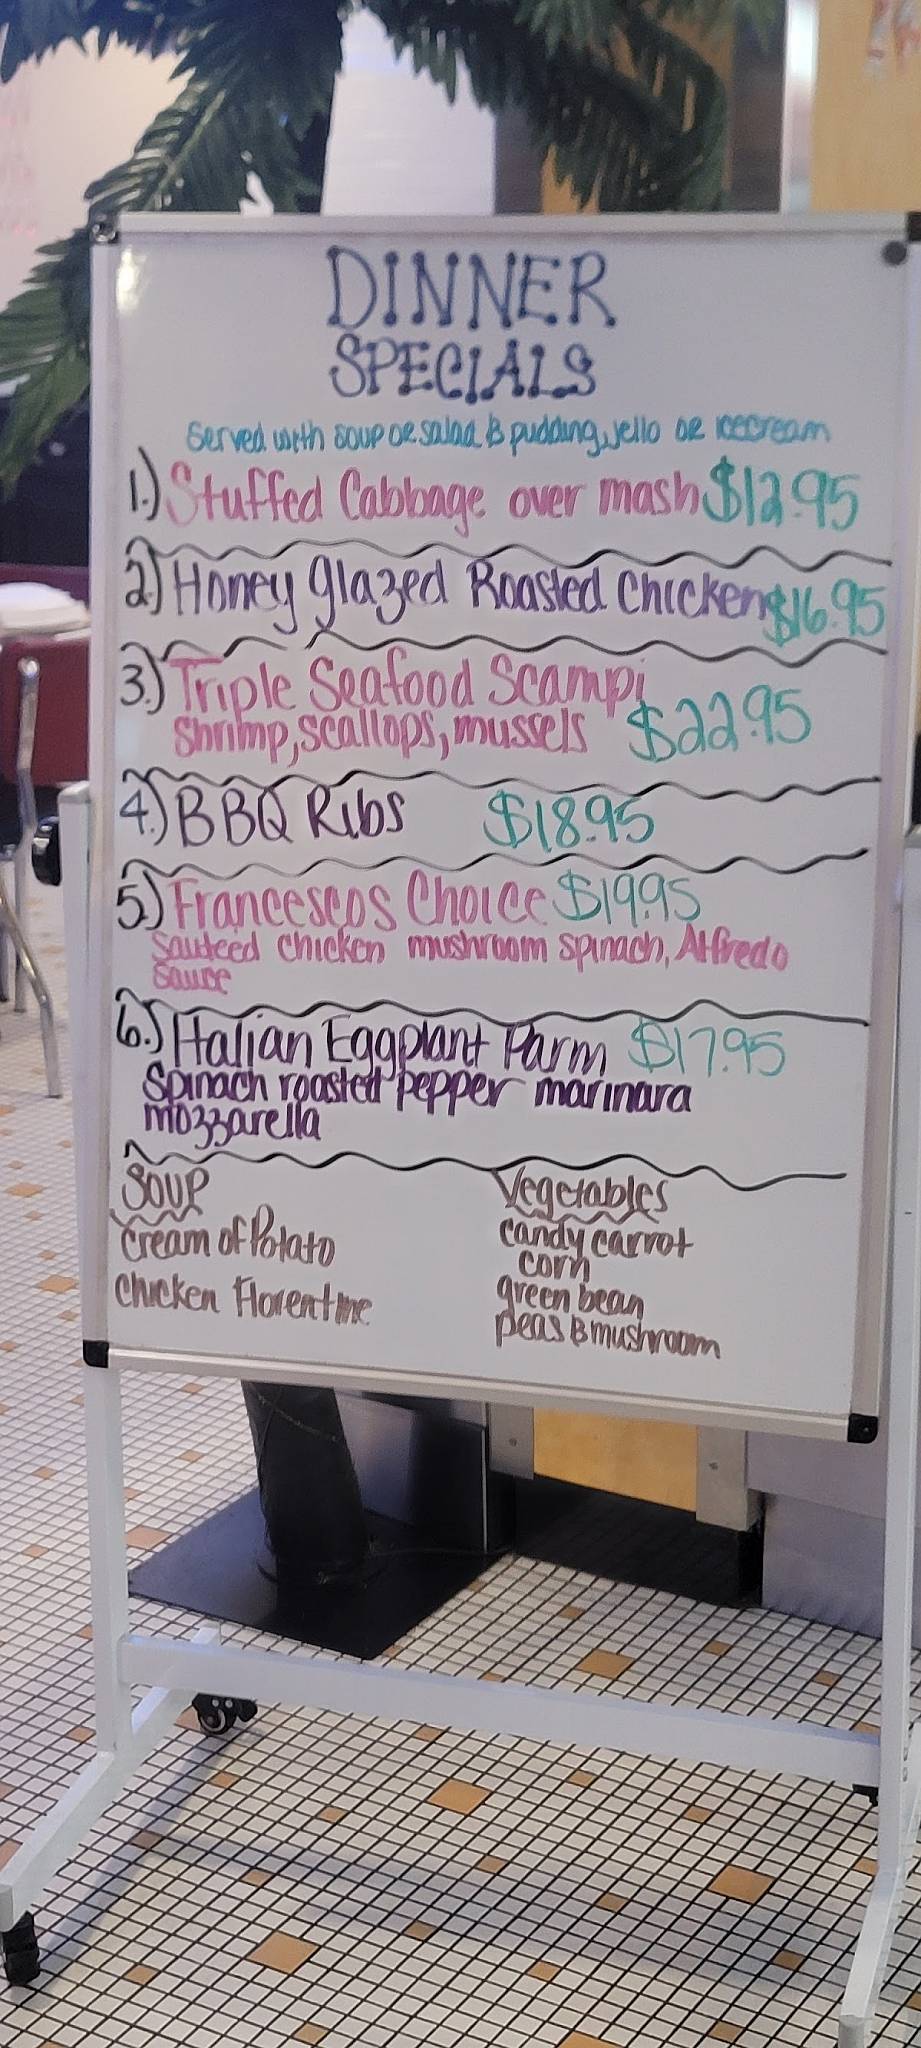 DINNER
SPECIALS
Served with soup or salad & pudding, jello or icecream
1.) Stuffed Cabbage over mash $12.95
2.) Honey glazed Roasted Chicken $16.95
3.) Triple Seafood Scampi
Shrimp, scallops, mussels $22.95
4.) BBQ Ribs $18.95
5.) Francescos Choice $19.95
Sauteed chicken mushroom spinach, Alfredo
Sauce
6.) Italian Eggplant Parm $17.95
Spinach roasted pepper marinara
mozzarella
Soup
Cream of Potato
Chicken Florentine
Vegetables
candy carrot
corn
green bean
peas & mushroom